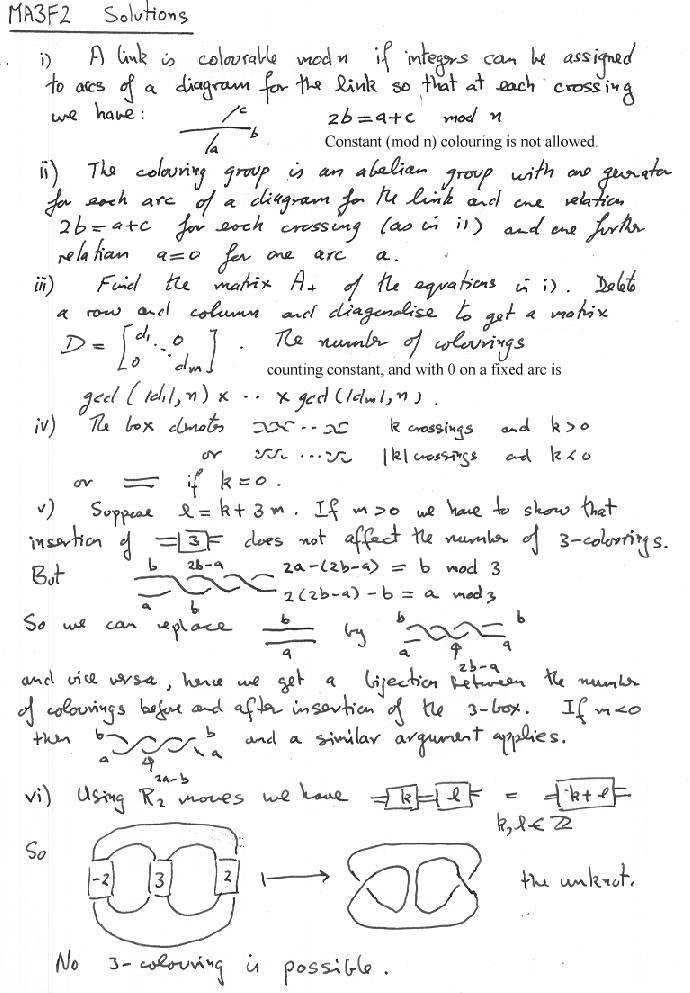 MA3F2 Solutions
i) A link is colourable mod n if integers can be assigned
to arcs of a diagram for the link so that at each crossing
we have: c b a 2b = a + c mod n
Constant (mod n) colouring is not allowed.
ii) The colouring group is an abelian group with one generator
for each arc of a diagram for the link and one relation
2b = a+c for each crossing (as in i)) and one further
relation a=0 for one arc a.
iii) Find the matrix A+ of the equations in i). Delete
a row and column and diagonalise to get a matrix
D = [d1 .. 0 0 dm]. The number of colourings
counting constant, and with 0 on a fixed arc is
gcd(|d1|, n) x .. x gcd(|dm|, n).
iv) The box denotes ... k crossings and k>0
or ... |k| crossings and k<0
or = if k=0.
v) Suppose l = k+3m. If m>0 we have to show that
insertion of 3 does not affect the number of 3-colourings.
But b 2b-a 2a-(2b-a) = b mod 3
a b 2(2b-a)-b = a mod 3
So we can replace b a by b a b a
2b-a
and vice versa, hence we get a bijection between the number
of colourings before and after insertion of the 3-box. If m<0
then b a b a and a similar argument applies.
2a-b
vi) Using R2 moves we have k l = k+l
k, l ∈ ℤ
So -2 3 2 the unknot.
No 3-colouring is possible.